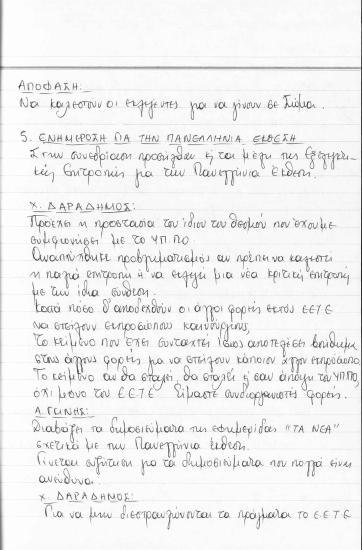 ΑΠΟΦΑΣΗ:
Να καλεστουν οι εκλεγεντες για να γίνουν σε Σώμα.
5. ΕΝΗΜΕΡΩΣΗ ΓΙΑ ΤΗΝ ΠΑΝΕΛΛΗΝΙΑ ΕΚΘΕΣΗ
Στην συνεδρίαση προσήλθαν 4 τα μέλη της Εξελεγκτι-
κής Επιτροπής για την Πανελλήνια Έκθεση.
Χ. ΔΑΡΑΔΗΜΟΣ:
Προέχει η προστασία του ίδιου του θεσμού που έχουμε
συμφωνήσει με το ΥΠ.ΠΟ.
Αναπτύχθηκε προβληματισμός αν πρέπει να καλεστεί
η παλιά επιτροπή ή να εκλεγεί μια νέα κριτική επιτροπή
με την ίδια σύνθεση.
Κατά πόσο θ' αποδεχθούν οι άλλοι φορείς εκτός ΕΕΤΕ
να στείλουν εκπροσώπους καινούργιους,
Το κείμενο που έχει συνταχτεί ίσως αποτελέσει
στους άλλους φορείς για να στείλουν κάποιον άλλον εκπρόσωπο,
Το κείμενο αν θα σταλεί, θα σταλεί σαν άποψη του ΥΠ.ΠΟ,
όχι μόνο του Ε.Ε.Τ.Ε. Είμαστε συνδιοργανωτές φορείς.
Λ. ΓΕΙΝΗΣ:
Διαβάζει τα δημοσιεύματα της εφημερίδας "ΤΑ ΝΕΑ"
σχετικά με την Πανελλήνια Έκθεση.
Γίνεται συζήτηση για τα δημοσιεύματα που πολλά είναι
ανεύθυνα.
Χ. ΔΑΡΑΔΗΜΟΣ:
Για να μην διαστραυλώνονται τα πράγματα το Ε.Ε.Τ.Ε